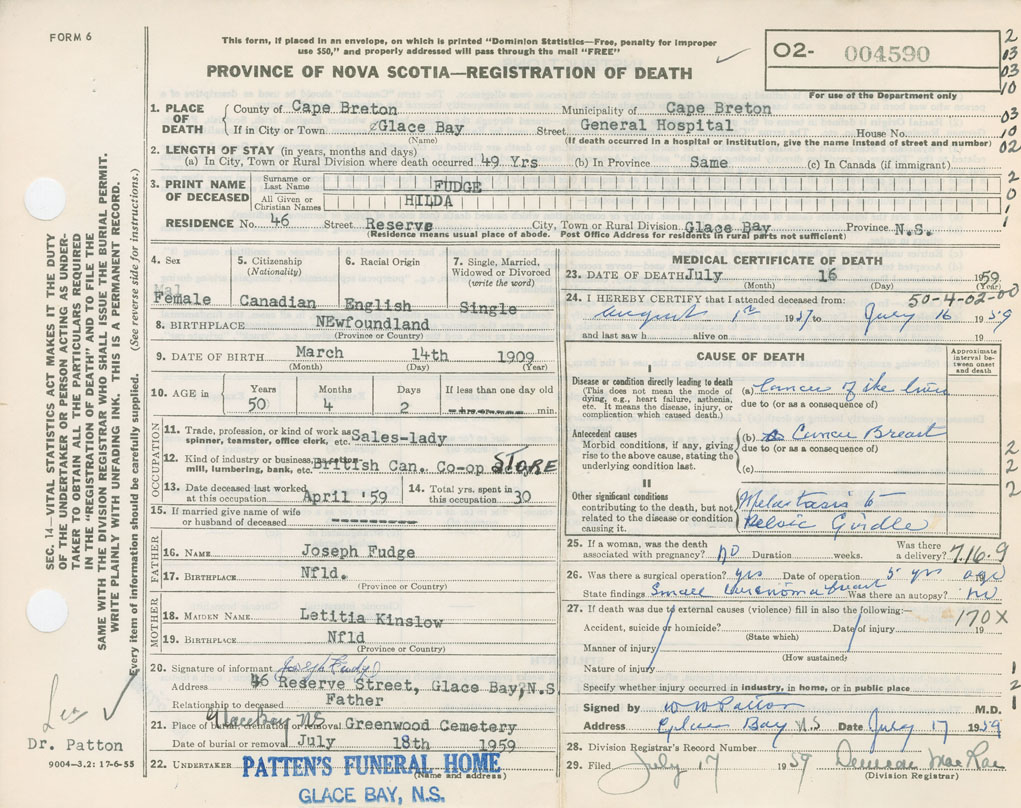 FORM 6
This form, if placed in an envelope, on which is printed "Dominion Statistics—Free, penalty for improper
use $50," and properly addressed will pass through the mail "FREE"
PROVINCE OF NOVA SCOTIA—REGISTRATION OF DEATH
02- 004590
For use of the Department only
SEC. 14—VITAL STATISTICS ACT MAKES IT THE DUTY
OF THE UNDERTAKER OR PERSON ACTING AS UNDER-
TAKER TO OBTAIN ALL THE PARTICULARS REQUIRED
IN THE "REGISTRATION OF DEATH" AND TO FILE THE
SAME WITH THE DIVISION REGISTRAR WHO SHALL ISSUE THE BURIAL PERMIT.
WRITE PLAINLY WITH UNFADING INK. THIS IS A PERMANENT RECORD.
Every item of information should be carefully supplied. (See reverse side for instructions.)
1. PLACE OF DEATH
County of Cape Breton Municipality of Cape Breton
If in City or Town Glace Bay Street General Hospital House No.
(Name) (If death occurred in a hospital or institution, give the name instead of street and number)
2. LENGTH OF STAY (in years, months and days)
(a) In City, Town or Rural Division where death occurred 49 Yrs (b) In Province Same (c) In Canada (if immigrant)
3. PRINT NAME OF DECEASED
Surname or Last Name FUDGE
All Given or Christian Names HILDA
RESIDENCE No. 46 Street Reserve City, Town or Rural Division Glace Bay Province N.S.
(Residence means usual place of abode. Post Office Address for residents in rural parts not sufficient)
4. Sex
Female
5. Citizenship
(Nationality)
Canadian
6. Racial Origin
English
7. Single, Married,
Widowed or Divorced
(write the word)
Single
8. BIRTHPLACE NEwfoundland
(Province or Country)
9. DATE OF BIRTH March 14th 1909
(Month) (Day) (Year)
10. AGE in
Years Months Days If less than one day old
50 4 2 min.
OCCUPATION
11. Trade, profession, or kind of work as
spinner, teamster, office clerk, etc. Sales-lady
12. Kind of industry or business,
mill, lumbering, bank, etc. British Can. Co-op STORE
13. Date deceased last worked
at this occupation April '59
14. Total yrs. spent in
this occupation 30
15. If married give name of wife
or husband of deceased
FATHER
16. NAME Joseph Fudge
17. BIRTHPLACE Nfld.
(Province or Country)
MOTHER
18. MAIDEN NAME Letitia Kinslow
19. BIRTHPLACE Nfld
(Province or Country)
20. Signature of informant Joseph Fudge
Address 46 Reserve Street, Glace Bay, N.S
Relationship to deceased Father
Glace Bay N.S.
21. Place of burial, cremation or removal Greenwood Cemetery
Date of burial or removal July 18th 1959
22. UNDERTAKER PATTEN'S FUNERAL HOME
(Name and address)
GLACE BAY, N.S.
Dr. Patton
9004—3.2: 17-6-55
MEDICAL CERTIFICATE OF DEATH
23. DATE OF DEATH July 16 1959
(Month) (Day) (Year)
24. I HEREBY CERTIFY that I attended deceased from: 50-4-02-00
August 1st 1957 to July 16 1959
and last saw h alive on 19
CAUSE OF DEATH
Approximate
interval be-
tween onset
and death
I
Disease or condition directly leading to death
(This does not mean the mode of
dying, e.g., heart failure, asthenia,
etc. It means the disease, injury, or
complication which caused death.)
(a) Cancer of the liver
due to (or as a consequence of)
Antecedent causes
Morbid conditions, if any, giving
rise to the above cause, stating the
underlying condition last.
(b) Cancer Breast
due to (or as a consequence of)
(c)
II
Other significant conditions
contributing to the death, but not
related to the disease or condition
causing it.
Metastasis to
Pelvic Girdle
25. If a woman, was the death
associated with pregnancy? no Duration weeks. Was there
a delivery? 7.16.9
26. Was there a surgical operation? yes Date of operation 5 yrs ago
State findings Small carcinoma breast Was there an autopsy? no
27. If death was due to external causes (violence) fill in also the following:—
170X
Accident, suicide or homicide? Date of injury 19
(State which)
Manner of injury
(How sustained)
Nature of injury
Specify whether injury occurred in industry, in home, or in public place
Signed by W W Patton M.D.
Address Glace Bay N.S Date July 17 1959
28. Division Registrar's Record Number
29. Filed July 17 1959 MacRae
(Division Registrar)